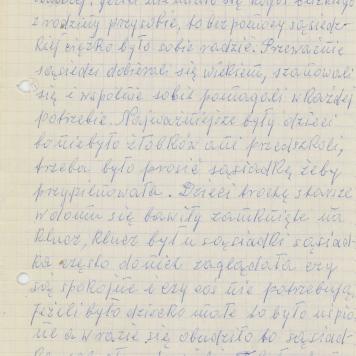 z rodziny przy sobie, to bez pomocy sąsiedz-
kiej ciężko było sobie radzić. Przeważnie
sąsiedzi dobierali się wiekiem, szanowali
się i wspólnie sobie pomagali w każdej
potrzebie. Najważniejsze były dzieci
bo niebyło żłobków ani przedszkoli,
trzeba było prosić sąsiadkę żeby
przypilnowała. Dzieci trochę starsze
w domu się bawiły zamknięte na
klucz, klucz był u sąsiadki sąsiad-
ka często do nich zaglądała czy
są spokojne i czy coś nie potrzebują,
jeżeli było dziecko małe to było uśpio
ne a w razie się obudziło to sąsiad-